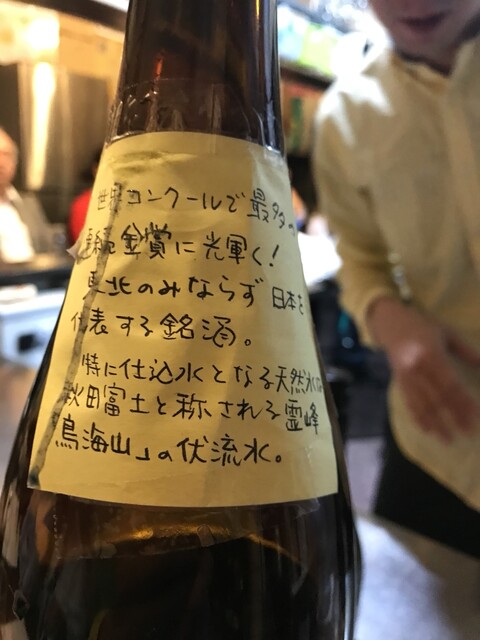 世界コンクールで最多の
連続金賞に光輝く!
東北のみならず日本を
代表する銘酒。
特に仕込水となる天然水は
秋田富士と称される霊峰
「鳥海山」の伏流水。